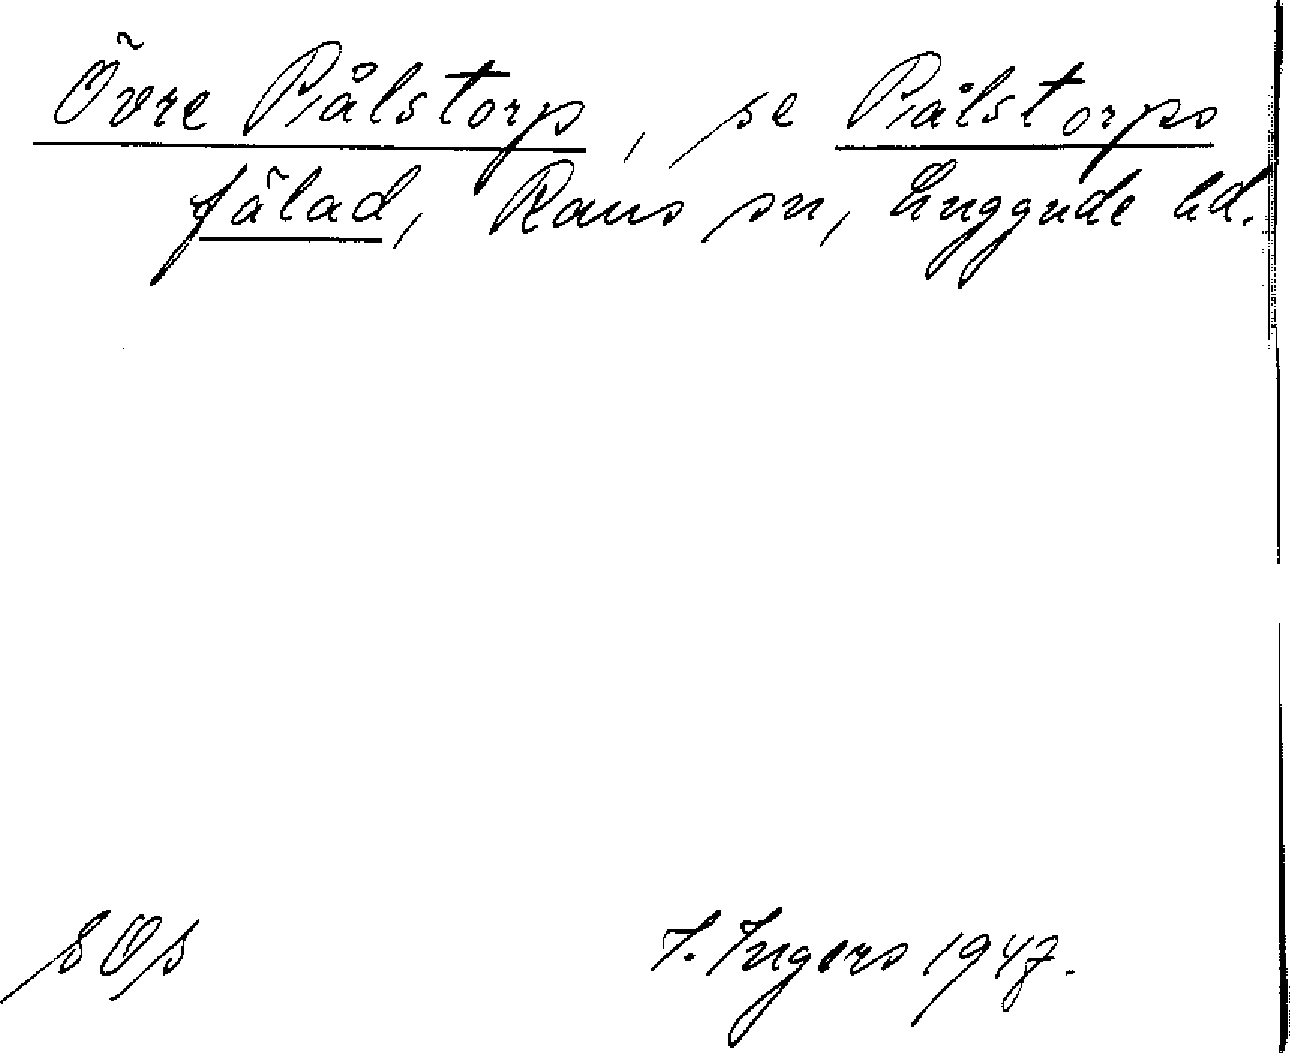 Övre Pålstorp, se Pålstorps
fälad, Raus sn, Luggude hd.
SOS
I. Ingers 1947.